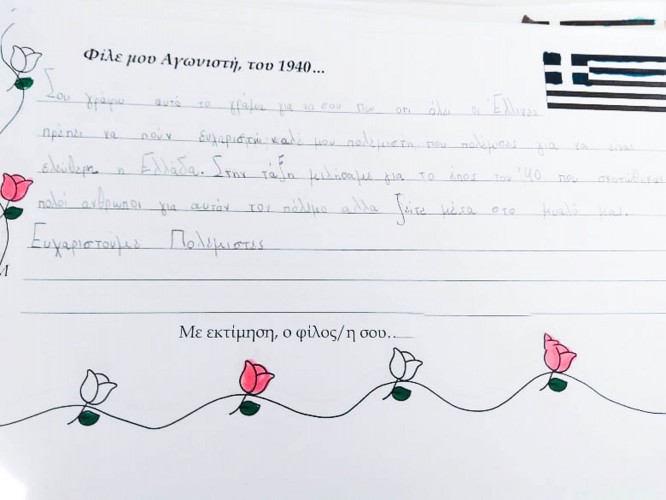 Φίλε μου Αγωνιστή, του 1940...
Σου γράφω αυτό το γράμα για να σου πω οτι όλοι οι Έλληνες
πρέπει να πούν ευχαριστώ καλέ μου πολεμιστη που πολέμισες για να είναι
ελεύθερη η Ελλάδα. Στην τάξη μιλήσαμε για το έπος του '40 που σκοτώθηκαν
πολοί άνθρωποι για αυτόν τον πόλεμο αλλα ζείτε μέσα στο μυαλό μας.
Ευχαριστουμε Πολεμιστες
Με εκτίμηση, ο φίλος/η σου...